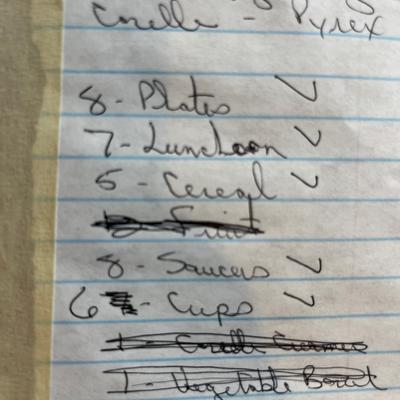 Corelle - Pyrex
8 - Plates ✓
7 - Luncheon ✓
5 - Cereal ✓
Fruit
8 - Saucers ✓
6 - Cups ✓
1 - Corelle Creamer
1 - Vegetable Bowl